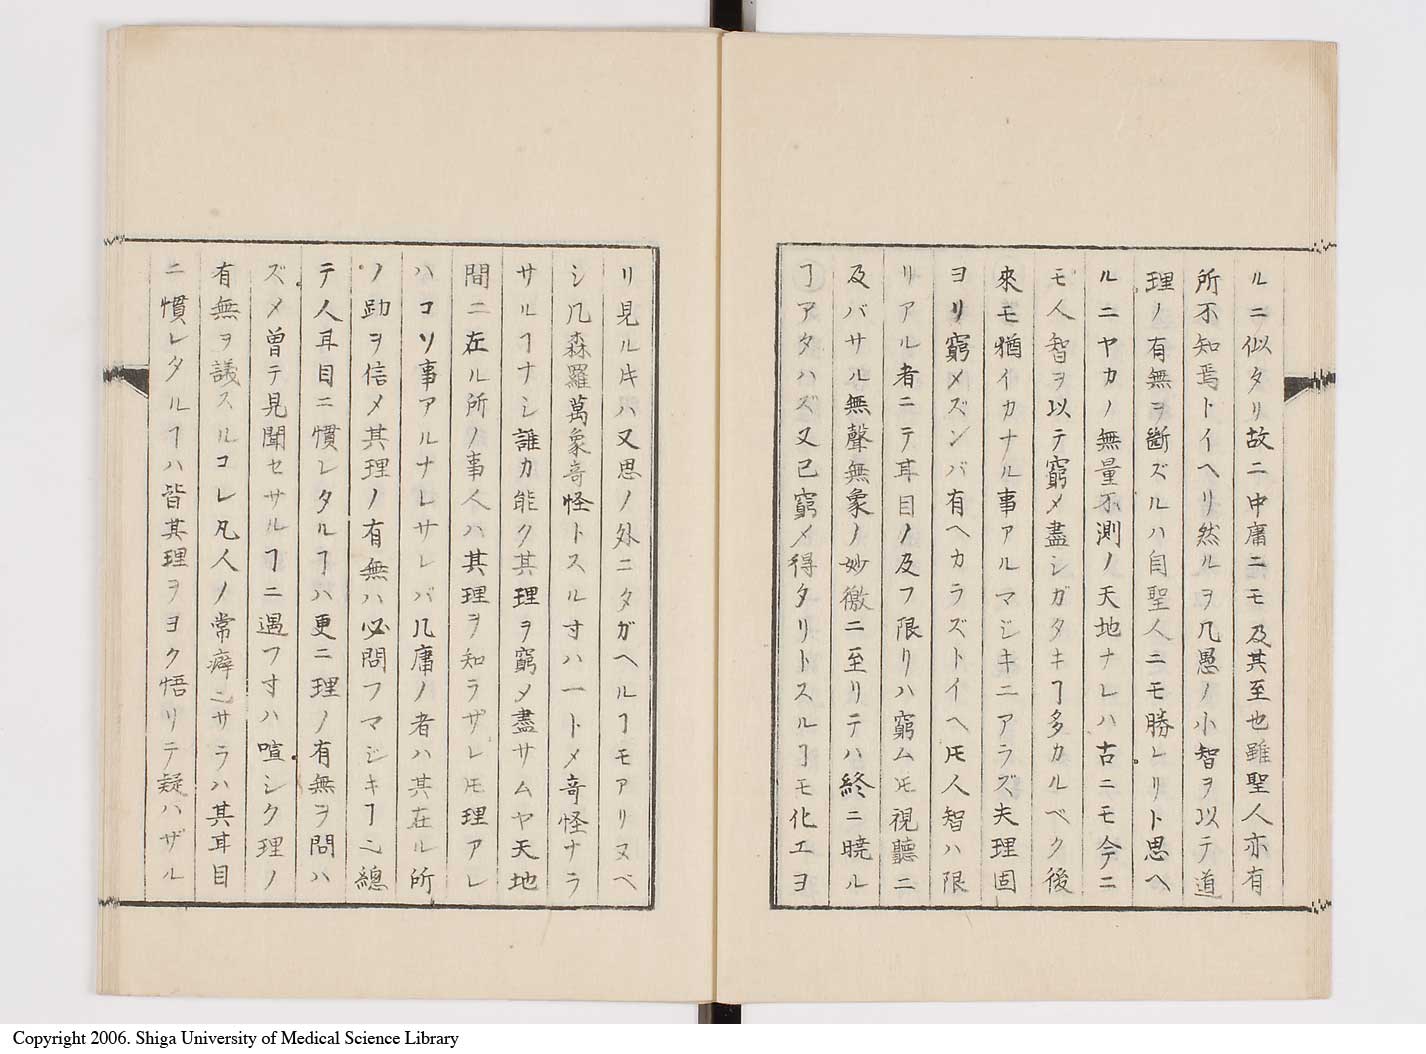 ルニ似タリ故ニ中庸ニモ及其至也雖聖人亦有
所不知焉トイヘリ然ルヲ凡愚ノ小智ヲ以テ道
理ノ有無ヲ斷ズルハ自聖人ニモ勝レリト思ヘ
ルニヤカノ無量不測ノ天地ナレハ古ニモ今ニ
モ人智ヲ以テ窮メ盡シガタキヿ多カルベク後
來モ猶イカナル事アルマジキニアラズ夫理固
ヨリ窮メズンバ有ヘカラズトイヘ𪜈人智ハ限
リアル者ニテ耳目ノ及フ限リハ窮ム𪜈視聽ニ
及バサル無聲無象ノ妙徼ニ至リテハ終ニ曉ル
ヿアタハズ又已窮メ得タリトスルヿモ化工ヨ
リ見ル𬼀ハ又思ノ外ニタガヘルヿモアリヌベ
シ凡森羅萬象竒怪トスル寸ハ一トメ竒怪ナラ
サルヿナシ誰カ能ク其理ヲ窮メ盡サムヤ天地
間ニ在ル所ノ事人ハ其理ヲ知ラザレ𪜈理アレ
ハコソ事アルナレサレバ凡庸ノ者ハ其在ル所
ノ跡ヲ信メ其理ノ有無ハ必問フマジキヿニ總
テ人耳目ニ慣レタルヿハ更ニ理ノ有無ヲ問ハ
ズメ曽テ見聞セサルヿニ遇フ寸ハ喧シク理ノ
有無ヲ議スルコレ凡人ノ常癖ニサラハ其耳目
ニ慣レタルヿハ皆其理ヲヨク悟リテ疑ハザル
Copyright 2006. Shiga University of Medical Science Library